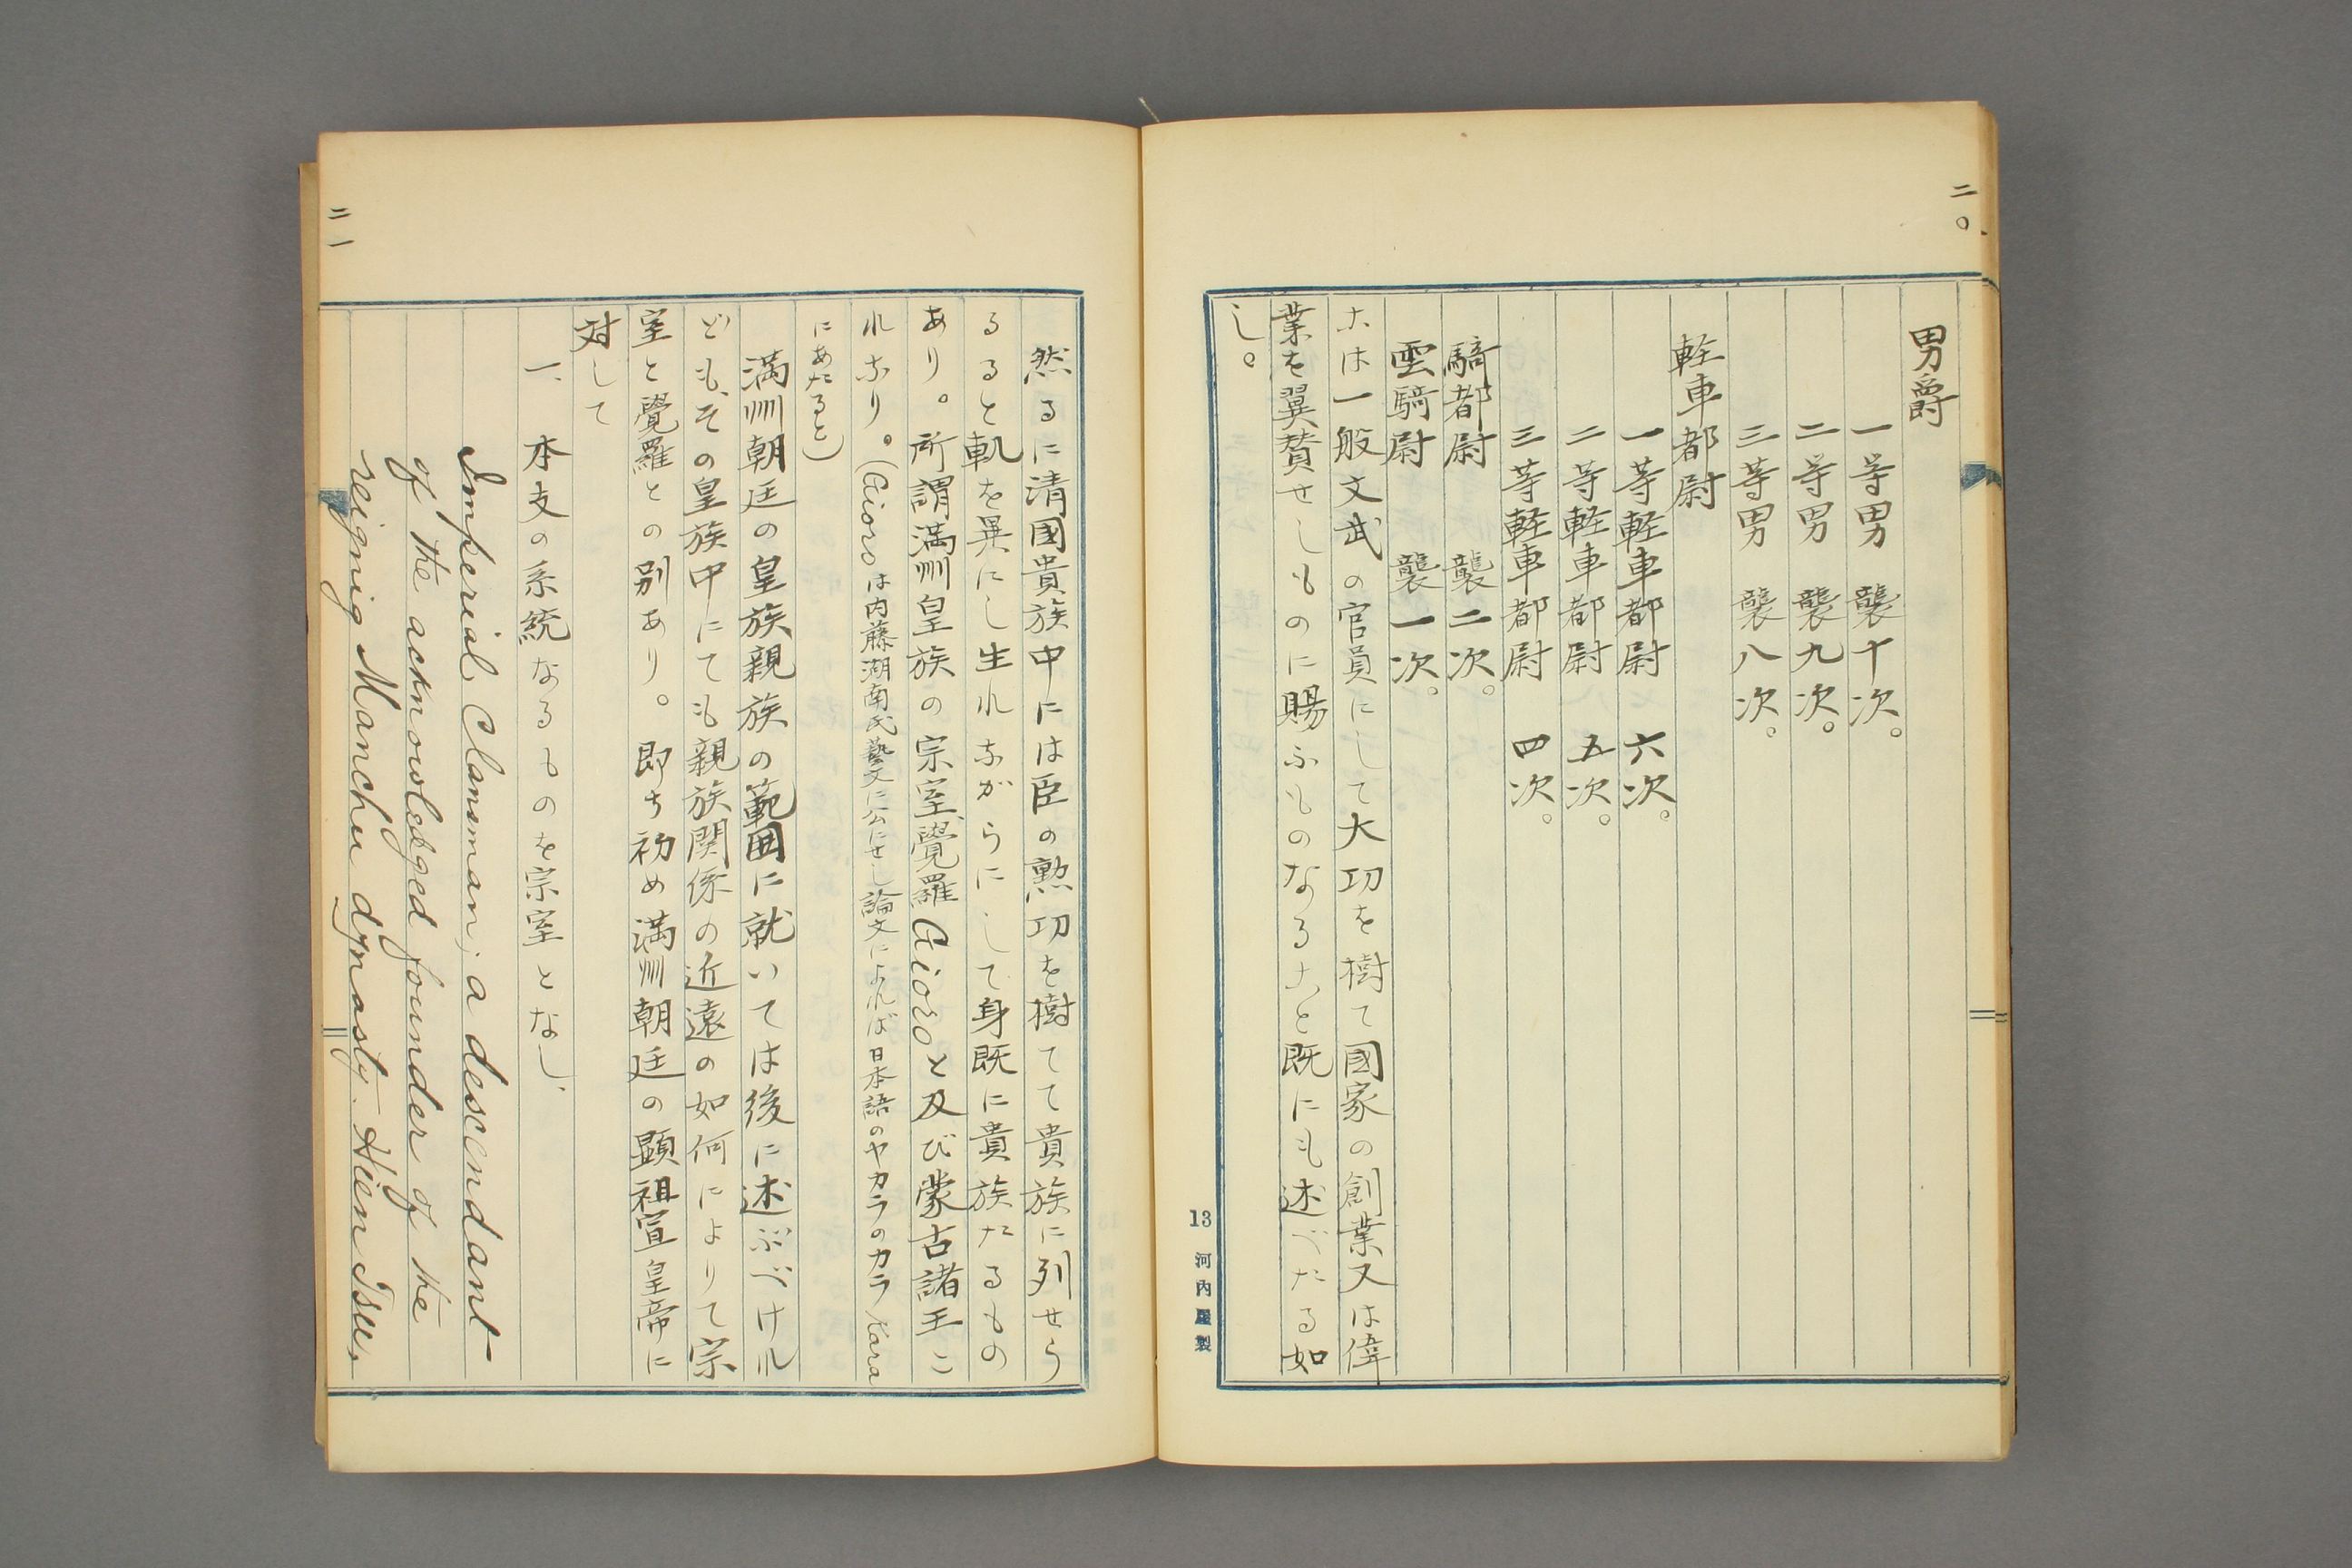 二〇
男爵
一等男 襲十次。
二等男 襲九次。
三等男 襲八次。
軽車都尉
一等軽車都尉 六次。
二等軽車都尉 五次。
三等軽車都尉 四次。
騎都尉 襲二次。
雲騎尉 襲一次。
こは一般文武の官員にして大功を樹て國家の創業又は偉
業を翼賛せしものに賜ふものなること既にも述べたる如
し。
13 河内屋製
二一
然るに清國貴族中には臣の勲功を樹てて貴族に列せら
るると軌を異にし生れながらにして身既に貴族たるもの
あり。所謂満洲皇族の宗室、覺羅Gioroと及び蒙古諸王こ
れなり。(Gioroは内藤湖南氏藝文に公にせし論文によれば日本語のヤカラのカラKara
にあたると)
満洲朝廷の皇族親族の範囲に就いては後に述ぶべけれ
ども、その皇族中にても親族関係の近遠の如何によりて宗
室と覺羅との別あり。即ち初め満洲朝廷の顕祖宣皇帝に
対して
一、本支の系統なるものを宗室となし、
Imperial Clansman; a descendant
of the acknowledged founder of the
reignig Manchu dynasty. Hien Tsu,